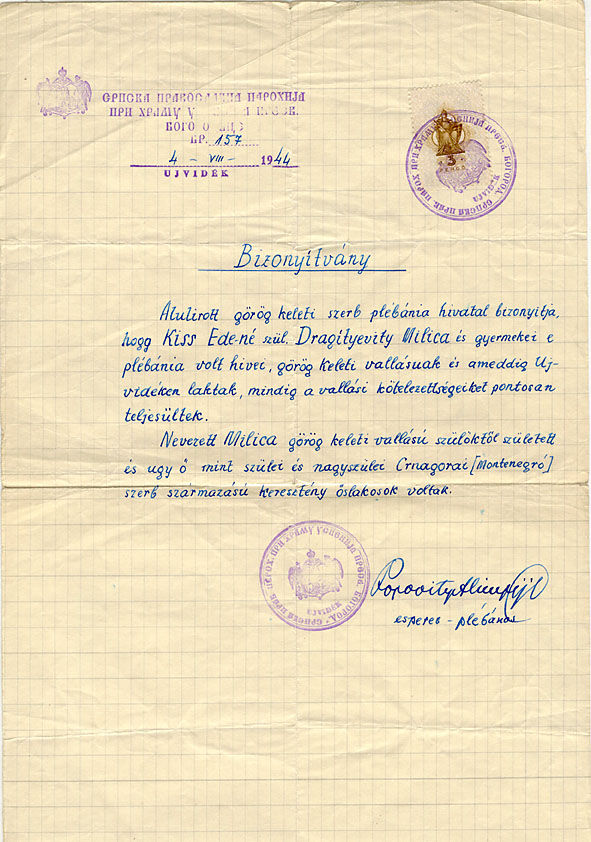 СРПСКА ПРАВОСЛАВНА ПАРОХИЈА
ПРИ ХРАМУ
БР. 157
4 - VIII - 1944
UJVIDÉK
3
Bizonyítvány
Alulirott görög keleti szerb plébánia hivatal bizonyitja,
hogg Kiss Ede-né szül. Dragityevity Milica és gyermekei e
plébánia volt hivei, görög keleti vallásuak és ameddig Uj-
vidéken laktak, mindig a vallási kötelezettségeiket pontosan
teljesültek.
Nevezett Milica görög keleti vallású szülöktől született
és ugy ő mint szülei és nagyszülei Crnagorai [Montenegró]
szerb származású keresztény őslakosok voltak.
esperes - plébános